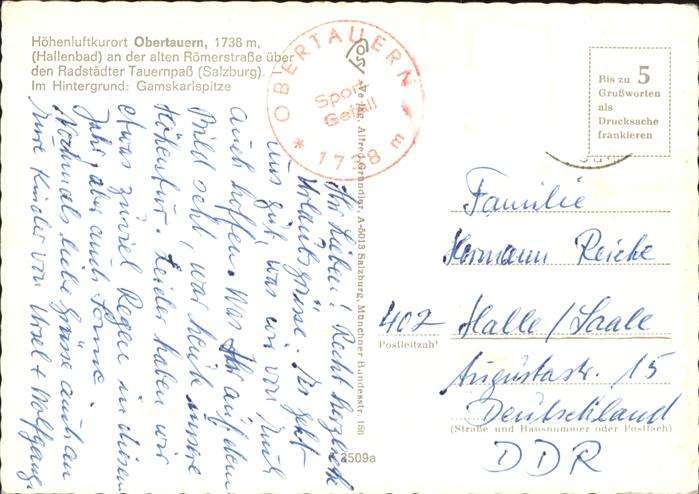 Höhenluftkurort Obertauern, 1738 m,
(Hallenbad) an der alten Römerstraße über
den Radstädter Tauernpaß (Salzburg).
Im Hintergrund: Gamskarlspitze
OBERTAUERN
Sport
Gefäll
* 1738 m
Verlag Alfred Gründler, A-5013 Salzburg, Münchner Bundesstr. 150
Bis zu 5
Grußworten
als
Drucksache
frankieren
Ihr Lieben! Recht herzliche
Urlaubsgrüsse. Es geht
uns gut, was wir von Euch
auch hoffen. Was Ihr auf dem
Bild seht, war heute unsere
Höhentour. Leider haben wir
etwas zuviel Regen in diesem
Jahr, aber auch Sonne.
Nochmals liebe Grüsse auch an
Eure Kinder von Ursel + Wolfgang
Familie
Hermann Reiche
402 Halle/Saale
Postleitzahl
Augustastr. 15
Deutschland
(Straße und Hausnummer oder Postfach)
DDR
2509a